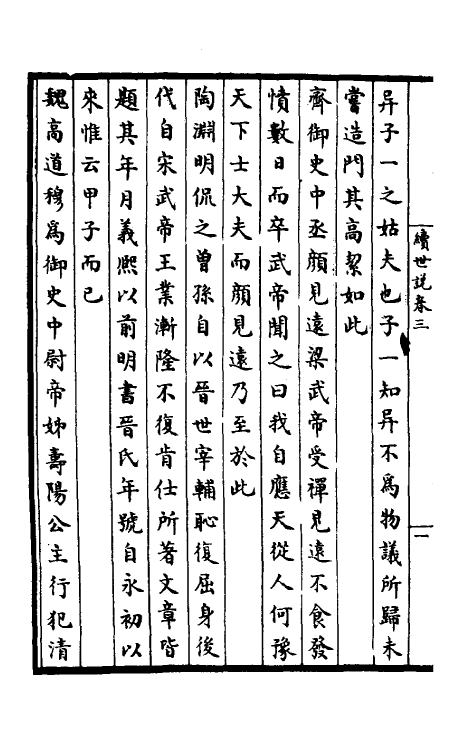 續世說卷三
一
异子一之姑夫也子一知异不為物議所歸未
嘗造門其高潔如此
齊御史中丞顏見遠梁武帝受禪見遠不食發
憤數日而卒武帝聞之曰我自應天從人何豫
天下士大夫而顏見遠乃至於此
陶淵明侃之曾孫自以晉世宰輔恥復屈身後
代自宋武帝王業漸隆不復肯仕所著文章皆
題其年月義熙以前明書晉氏年號自永初以
來惟云甲子而已
魏高道穆為御史中尉帝姊壽陽公主行犯清